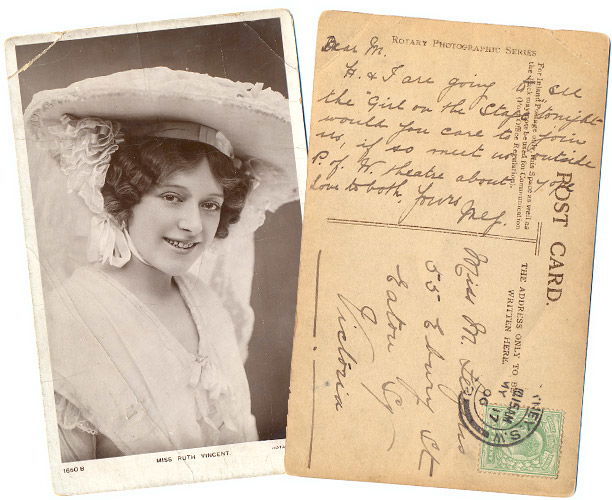 1660 B
MISS RUTH VINCENT.
ROTARY PHOTOGRAPHIC SERIES
Dear M.
H. & I are going to see
the "Girl on the Stage" tonight
would you care to join
us, if so meet us outside
P. of W. theatre about
love to both. Yours
For Inland Postage only this Space as well as
the back may now be used for Communication
(Post Office Regulation).
POST CARD.
THE ADDRESS ONLY TO BE
WRITTEN HERE.
Miss M.
55 Ebury St
Eaton Sq
Victoria
NEY S.W.
12.15AM
MY 17
06